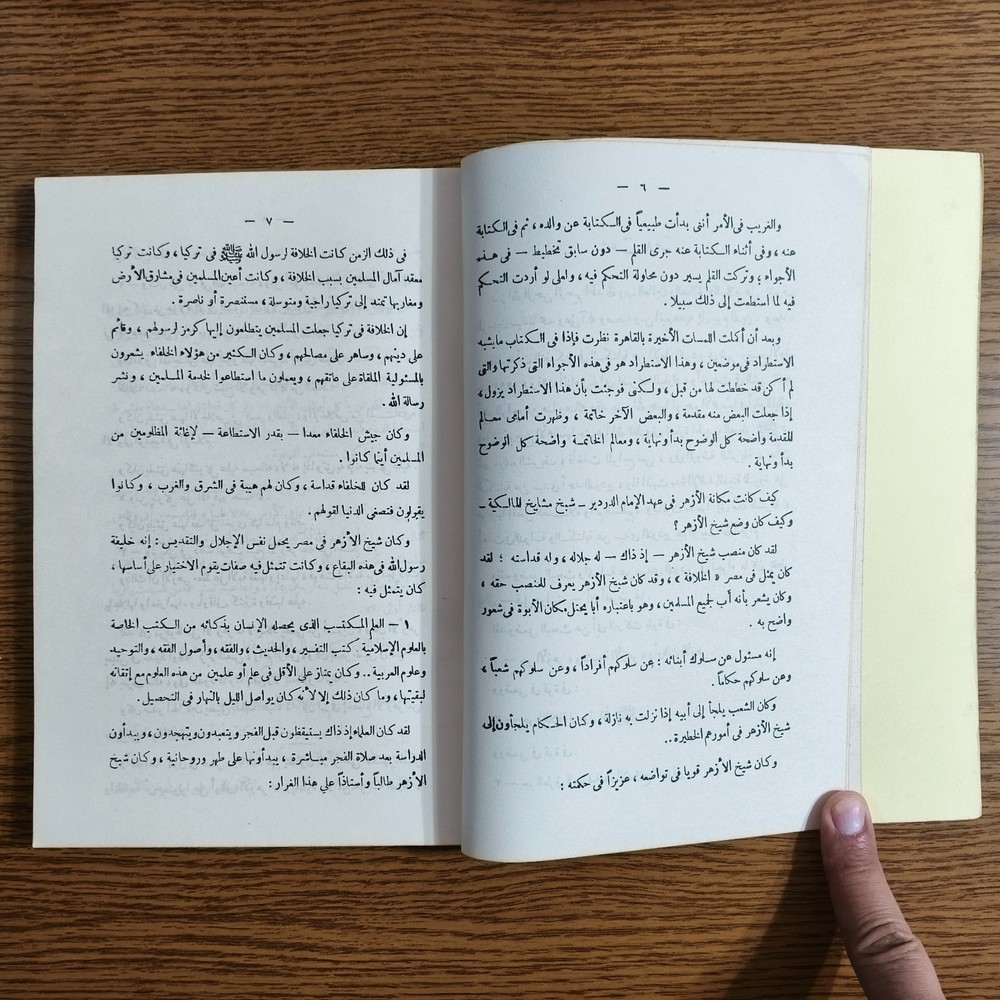 — ٦ —
والغريب فى الأمر أننى بدأت طبيعياً فى الكتابة عن والده ، ثم فى الكتابة
عنه ، وفى أثناء الكتابة عنه جرى القلم — دون سابق تخطيط — فى هذه
الأجواء ؛ وتركت القلم يسير دون محاولة التحكم فيه ، ولعلى لو أردت التحكم
فيه لما استطعت إلى ذلك سبيلا .
وبعد أن أكملت اللمسات الأخيرة بالقاهرة نظرت فإذا فى الكتاب مايشبه
الاستطراد فى موضعين ، وهذا الاستطراد هو فى هذه الأجواء التى ذكرتها والتى
لم أكن قد خططت لها من قبل ، ولكنى فوجئت بأن هذا الاستطراد يزول ،
إذا جعلت البعض منه مقدمة ، والبعض الآخر خاتمة ، وظهرت أمامى معالم
المقدمة واضحة كل الوضوح بدأ ونهاية ، ومعالم الخاتمة واضحة كل الوضوح
بدأ ونهاية .
كيف كانت مكانة الأزهر فى عهد الإمام الدردير ـ شيخ مشايخ المالكية ـ
وكيف كان وضع شيخ الأزهر ؟
لقد كان منصب شيخ الأزهر — إذ ذاك — له جلاله ، وله قداسته ؛ لقد
كان يمثل فى مصر « الخلافة » ، وقد كان شيخ الأزهر يعرف للمنصب حقه ،
وكان يشعر بأنه أب لجميع المسلمين ، وهو باعتباره أبا يحتل مكان الأبوة فى شعور
واضح به .
إنه مسئول عن سلوك أبنائه : عن سلوكهم أفراداً ، وعن سلوكهم شعباً ،
وعن سلوكهم حكاماً .
وكان الشعب يلجأ إلى أبيه إذا نزلت به نازلة ، وكان الحكام يلجأون إلى
شيخ الأزهر فى أمورهم الخطيرة ..
وكان شيخ الأزهر قويا فى تواضعه ، عزيزاً فى حكمته :
— ٧ —
فى ذلك الزمن كانت الخلافة لرسول الله ﷺ فى تركيا ، وكانت تركيا
معقد آمال المسلمين بسبب الخلافة ، وكانت أعين المسلمين فى مشارق الأرض
ومغاربها تمتد إلى تركيا راجية ومتوسلة ، مستنصرة أو ناصرة .
إن الخلافة فى تركيا جعلت المسلمين يتطلعون إليها كرمز لرسولهم ، وقائم
على دينهم ، وساهر على مصالحهم ، وكان الكثير من هؤلاء الخلفاء يشعرون
بالمسئولية الملقاة على عاتقهم ، ويعملون ما استطاعوا لخدمة المسلمين ، ونشر
رسالة الله .
وكان جيش الخلفاء معدا — بقدر الاستطاعة — لإغاثة المظلومين من
المسلمين أينما كانوا .
لقد كان للخلفاء قداسة ، وكان لهم هيبة فى الشرق والغرب ، وكانوا
يقولون فتصغى الدنيا لقولهم .
وكان شيخ الأزهر فى مصر يحمل نفس الإجلال والتقديس : إنه خليفة
رسول الله فى هذه البقاع ، وكانت تتمثل فيه صفات يقوم الاختيار على أساسها ،
كان يتمثل فيه :
١ — العلم المكتسب الذى يحصله الإنسان بذكائه من الكتب الخاصة
بالعلوم الإسلامية . كتب التفسير ، والحديث ، والفقه ، وأصول الفقه ، والتوحيد
وعلوم العربية .. وكان يمتاز على الأقل فى علم أو علمين من هذه العلوم مع إتقانه
لبقيتها ، وما كان ذلك إلا لأنه كان يواصل الليل بالنهار فى التحصيل .
لقد كان العلماء إذ ذاك يستيقظون قبل الفجر ويتعبدون ويتهجدون ، ويبدأون
الدراسة بعد صلاة الفجر مباشرة ، يبدأونها على طهر وروحانية ، وكان شيخ
الأزهر طالباً وأستاذاً على هذا الغرار :